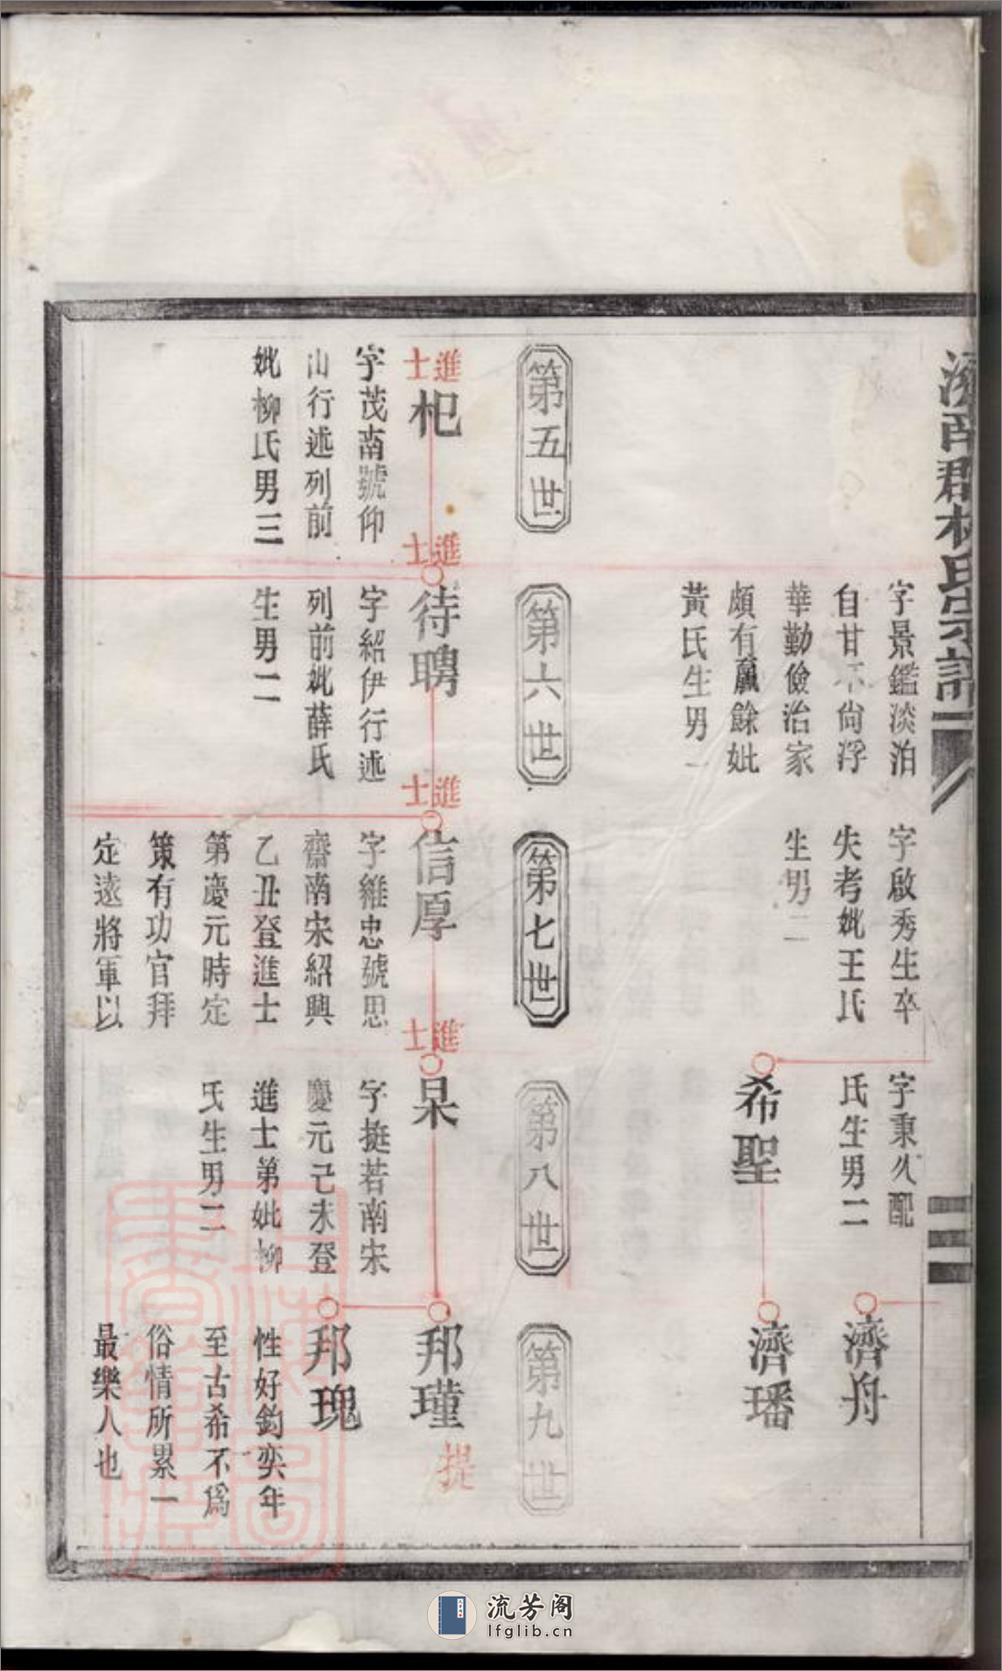 濟南郡林氏宗譜
字景鑑淡泊
自甘不尙浮
華勤儉治家
頗有贏餘妣
黃氏生男一
字啟秀生卒
失考妣王氏
生男二
字秉久配
氏生男二
希聖
濟舟
濟璠
第五世
第六世
第七世
第八世
第九世
進士
杞
字茂南號仰
山行述列前
妣柳氏男三
進士
待聘
字紹伊行述
列前妣薛氏
生男二
進士
信厚
字維忠號思
齋南宋紹興
乙丑登進士
第慶元時定
策有功官拜
定遠將軍以
進士
杲
字挺若南宋
慶元己未登
進士第妣柳
氏生男二
邦瑾
提
邦瑰
性好釣奕年
至古希不爲
俗情所累一
最樂人也
流芳阁
lfglib.cn